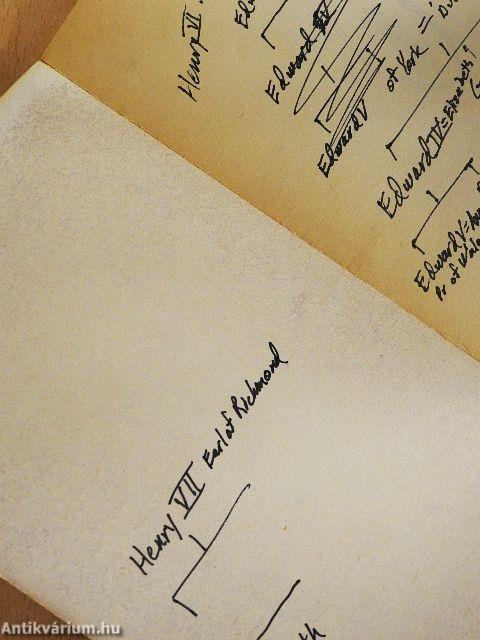 Henry VI
Edward IV
Edward V
of York =
Edward IV = Elizabeth
Edward V =
Pr of Wales
Henry VII Earl of Richmond
th
Antikvárium.hu